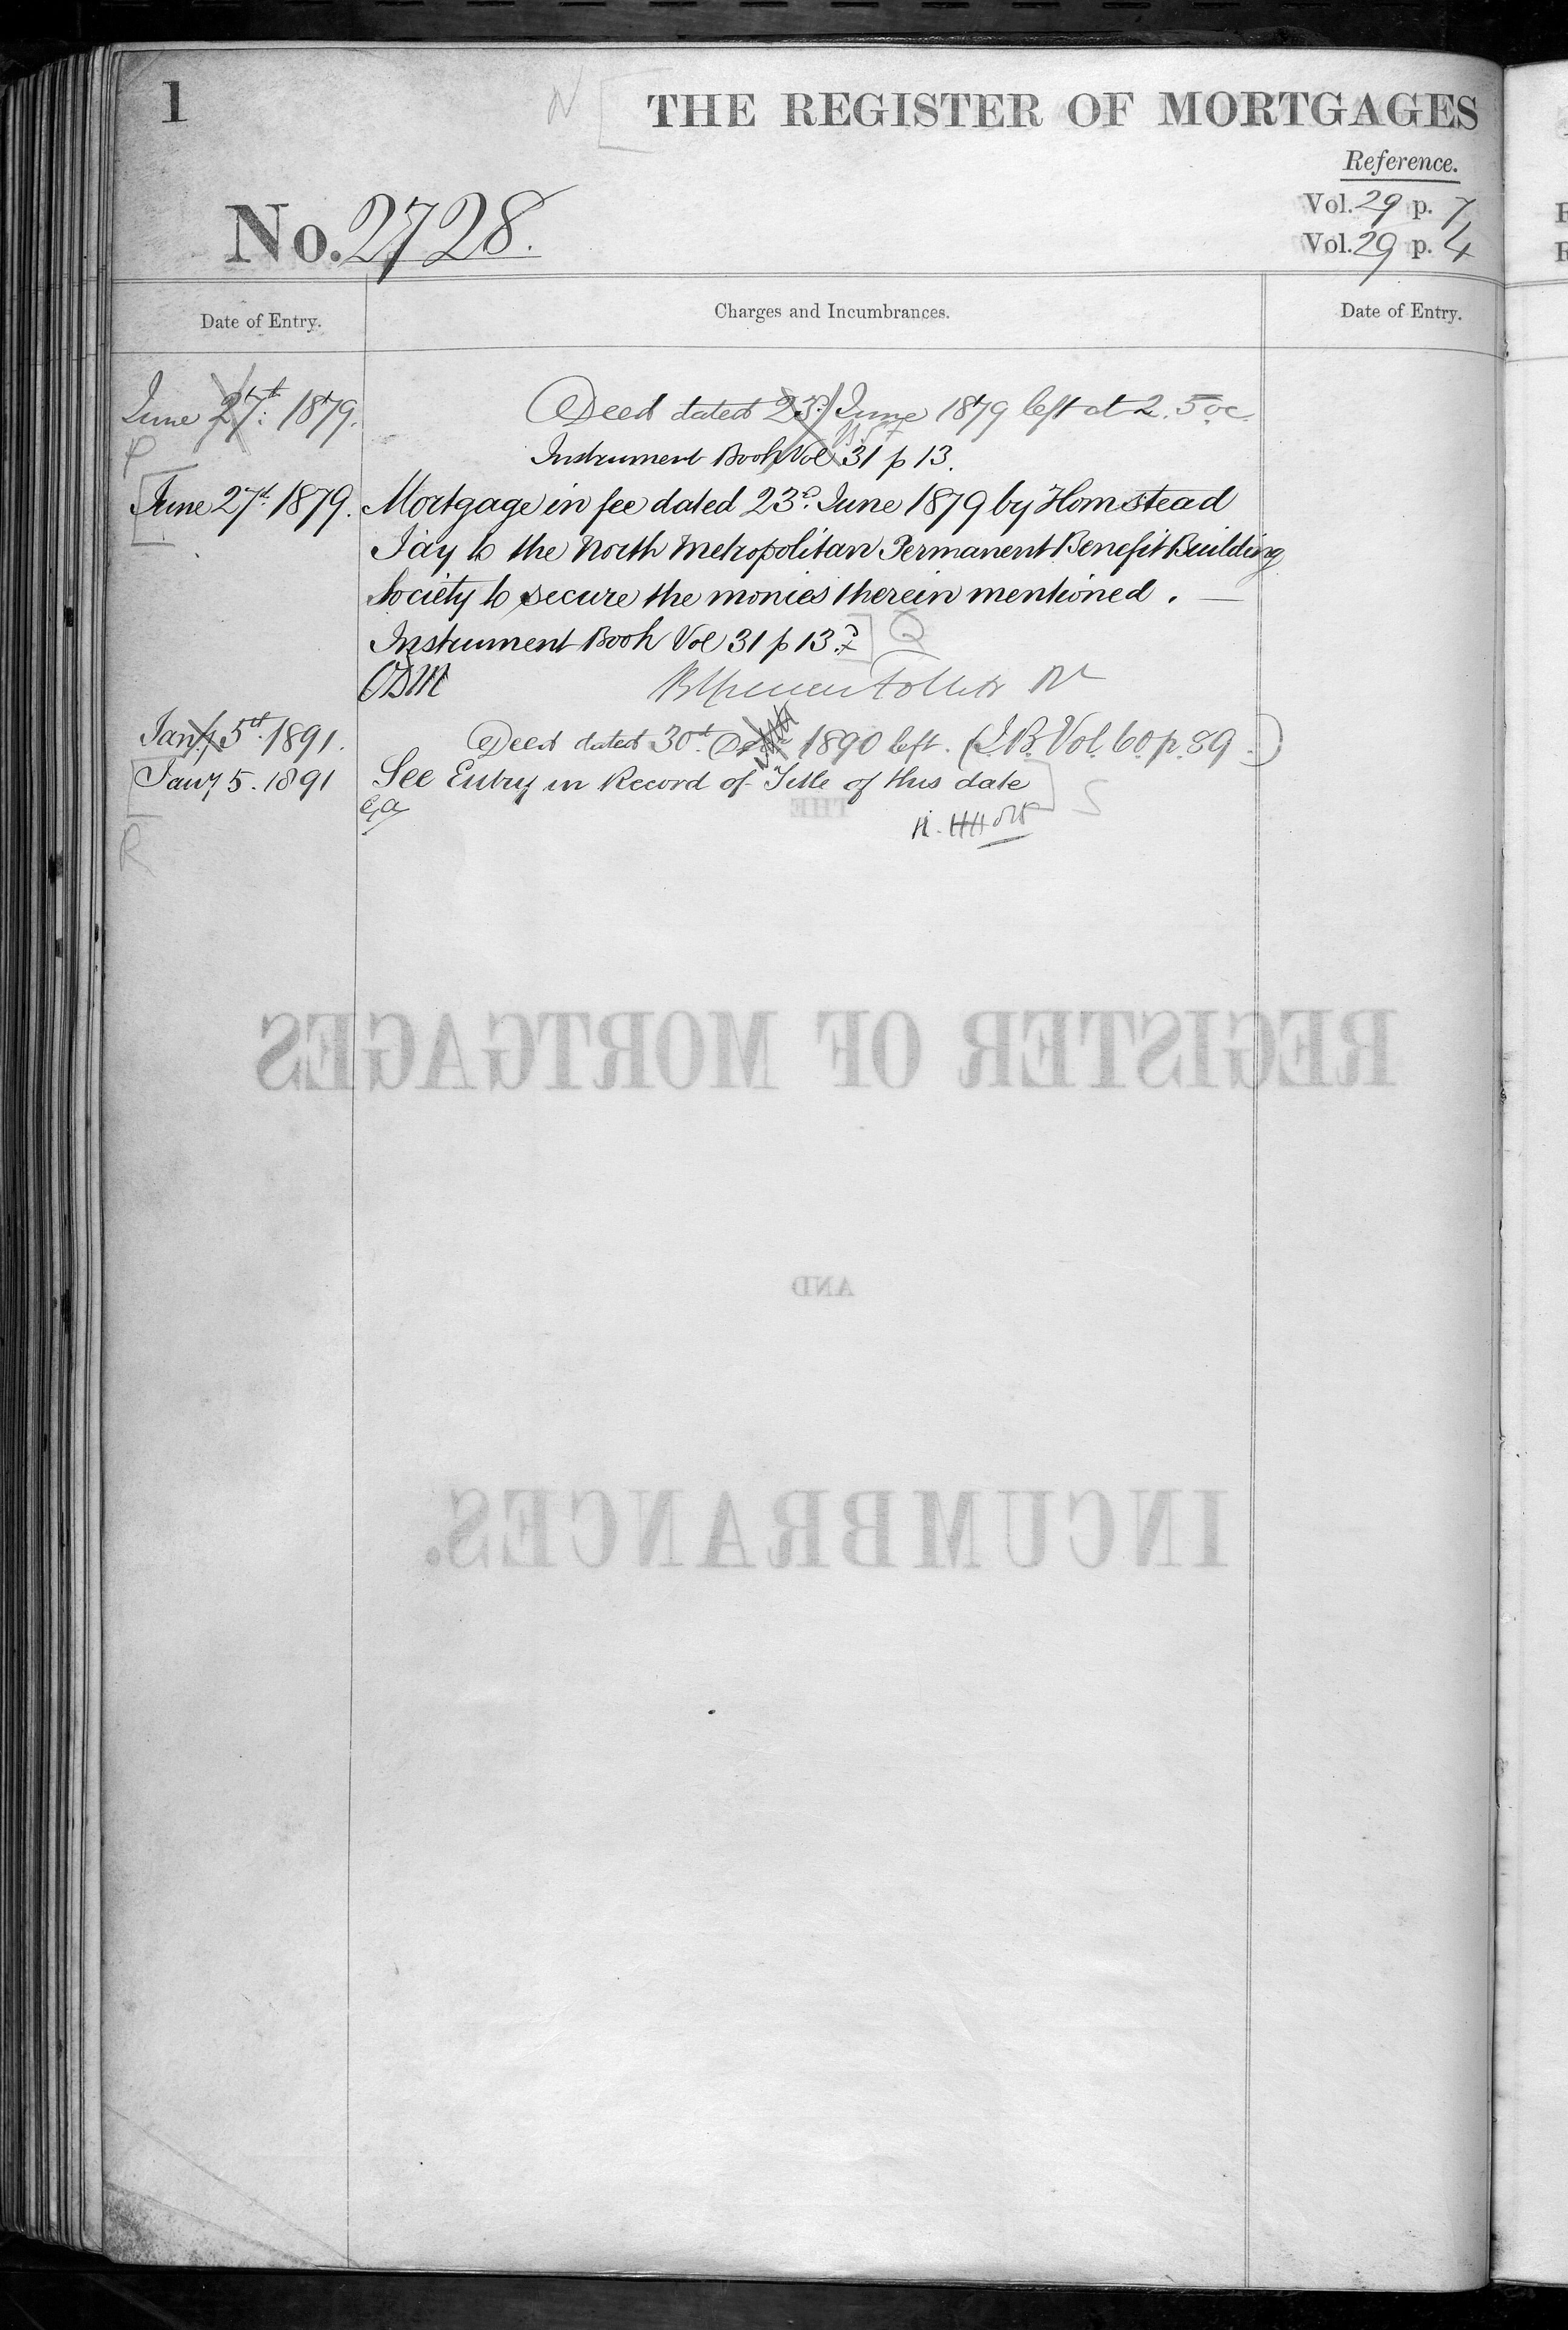 1
THE REGISTER OF MORTGAGES
N
Reference.
Vol. 29 p. 7
No. 2728.
Vol. 29 p. 4
Date of Entry.
Charges and Incumbrances.
Date of Entry.
June 27th. 1879.
Deed dated 23d. June 1879 left at 2.5 oc.
P
Instrument Book Vol 31 p 13.
June 27th. 1879.
Mortgage in fee dated 23d. June 1879 by Homstead
Jay to the North Metropolitan Permanent Benefit Building
Society to secure the monies therein mentioned. —
Instrument Book Vol 31 p 13.
Q
Jany 5th. 1891.
Deed dated 30th. 1890 left. (I.B. Vol. 60 p. 89.)
Jany 5. 1891
See Entry in Record of Title of this date
S
R
THE
REGISTER OF MORTGAGES
AND
INCUMBRANCES.